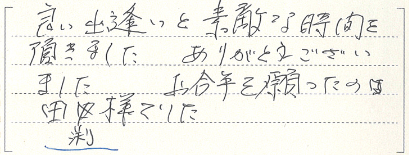 良い出逢いと素敵な時間を
頂きました ありがとうござい
ました お合手を願ったのは
様でした